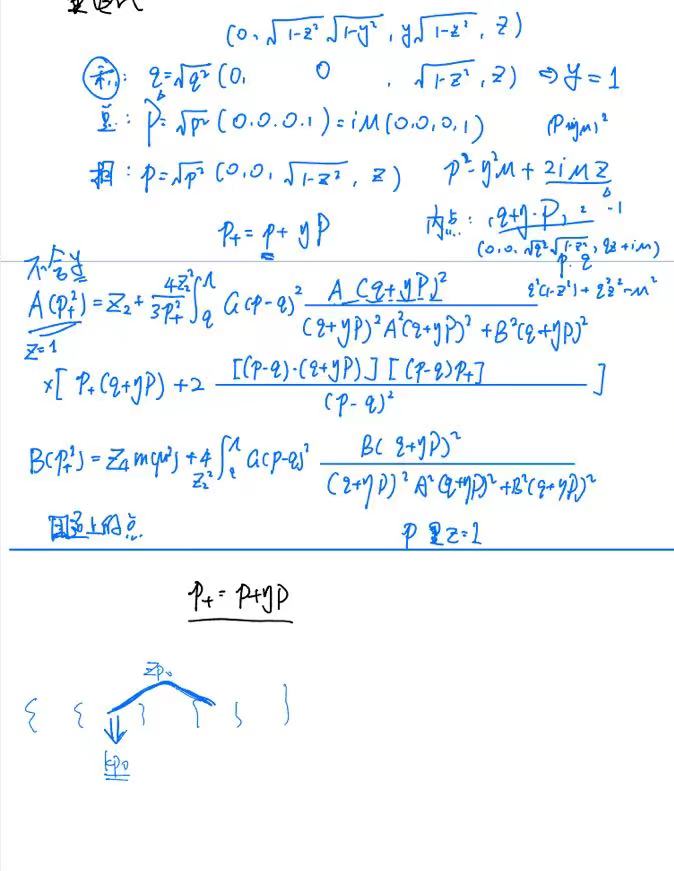 (0, √1-z² √1-y², y√1-z², z)
: q=√q² (0, 0, √1-z², z) ⇒ y=1
总: P=√P² (0.0.0.1)=iM(0,0,0,1)
相: p=√p² (0,0,√1-z², z) p²-y²M+2iMz
P₊ = p + yP
内点: (q+y·P)²
(0,0,√q²√1-z², qz+iM)
p.q
不含y
q²(1-z²)+q²z²-M²
A(p₊²)=Z₂+ 4Z₂²/3p₊² ∫_q^Λ G(p-q)² A(q+yP)² / (q+yP)²A²(q+yP)²+B²(q+yP)²
z=1
×[ P₊(q+yP)+2 [(p-q)·(q+yP)][(p-q)P₊] / (p-q)² ]
B(p₊²)=Z₄m(μ²)+ 4/Z₂² ∫_q^Λ G(p-q)² B(q+yP)² / (q+yP)²A²(q+yP)²+B²(q+yP)²
上的点 p 里z=1
P₊=p+yP
zp₀
{ { } { } }
kp₀